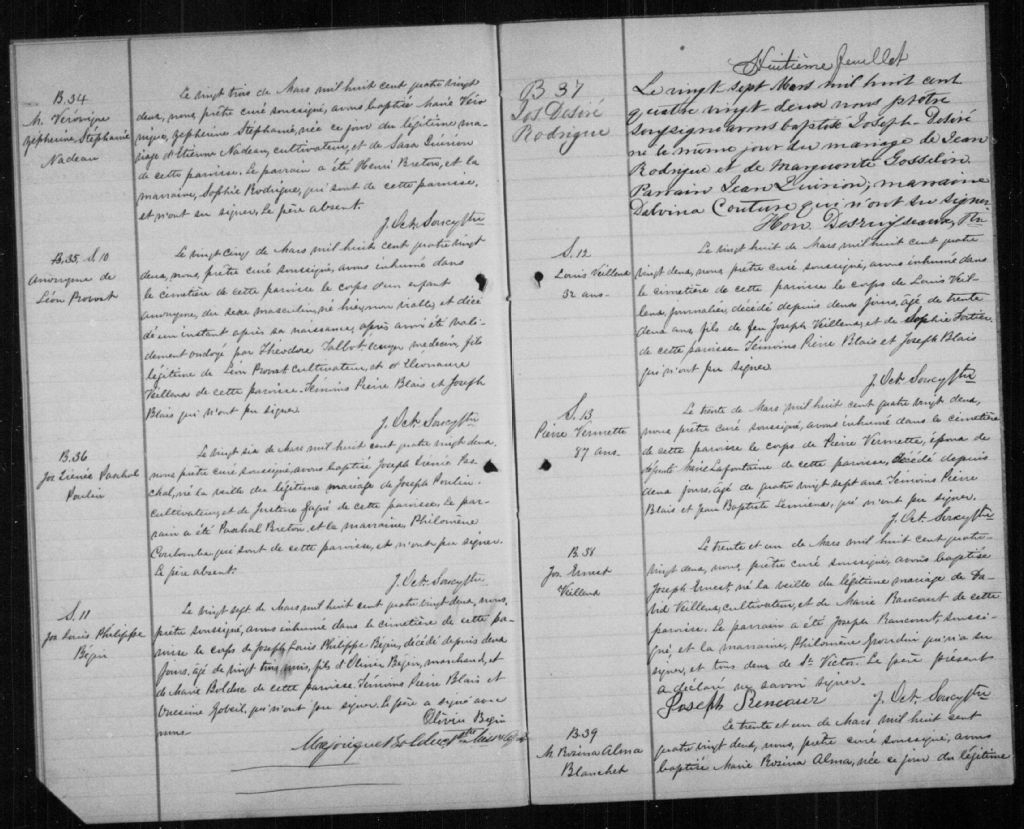 B.34
M. Véronique
Zépherine Stéphanie
Nadeau
Le vingt trois de Mars mil huit cent quatre vingt
deux, nous, prêtre curé soussigné, avons baptisé Marie Véro
nique, Zépherine Stéphanie, née ce jour du légitime ma-
riage d'Etienne Nadeau, cultivateur, et de Sara Guérion
de cette paroisse. Le parrain a été Henri Breton, et la
marraine, Sophie Rodrigue, qui sont de cette paroisse,
et n'ont su signer. Le père absent.
J. Oct. Soucy Ptre
B.35, S.10
Anonyme de
Léon Provost
Le vingt cinq de Mars mil huit cent quatre vingt
deux, nous, prêtre curé soussigné, avons inhumé dans
le cimetière de cette paroisse le corps d'un enfant
anonyme, du sexe masculin, né hier, non viable, et décé
dé un instant après sa naissance, après avoir été vali-
dement ondoyé par Théodore Talbot médecin, fils
légitime de Léon Provost cultivateur, et d'Eléonaire
Veilleux de cette paroisse. Témoins Pierre Blais et Joseph
Blais qui n'ont pu signer.
J. Oct. Soucy Ptre
B.36
Jos Paschal
Poulin
Le vingt six de Mars mil huit cent quatre vingt deux,
nous, prêtre curé soussigné, avons baptisé Joseph Pas-
chal, né la veille du légitime mariage de Joseph Poulin,
cultivateur, et de Justine Gagné de cette paroisse. Le par-
rain a été Paschal Breton, et la marraine, Philomène
Coulombe qui sont de cette paroisse, et n'ont pu signer.
Le père absent.
J. Oct. Soucy Ptre
S.11
Jos Louis Philippe
Bégin
Le vingt sept de Mars mil huit cent quatre vingt deux, nous,
prêtre soussigné, avons inhumé dans le cimetière de cette pa-
roisse le corps de Joseph Louis Philippe Bégin, décédé depuis deux
jours, âgé de vingt trois mois, fils d'Olivier Bégin, marchand, et
de Marie Bolduc de cette paroisse. Témoins Pierre Blais et
Onésime Roberge, qui n'ont pu signer. Le père a signé avec
nous
Olivier Bégin
Bolduc Ptre
Huitième feuillet
B 37
Jos Désiré
Rodrigue
Le vingt sept Mars mil huit cent
quatre vingt deux nous prêtre
soussigné avons baptisé Joseph-Désiré
né le même jour du mariage de Jean
Rodrigue et de Marguerite Gosselin.
Parrain Jean Quirion, marraine
Delvina Couture qui n'ont su signer
Hon. Desruisseaux, Ptre
S.12
Louis Veilleux
32 ans-
Le vingt huit de Mars mil huit cent quatre
vingt deux, nous, prêtre curé soussigné, avons inhumé dans
le cimetière de cette paroisse le corps de Louis Veil-
leux, journalier, décédé depuis deux jours, âgé de trente
deux ans, fils de feu Joseph Veilleux, et de Sophie Fortier
de cette paroisse. Témoins Pierre Blais et Joseph Blais
qui n'ont pu signer.
J. Oct. Soucy Ptre
S.13
Pierre Vermette
87 ans.
Le trente de Mars mil huit cent quatre vingt deux,
nous, prêtre curé soussigné, avons inhumé dans le cimetière
de cette paroisse le corps de Pierre Vermette, époux de
défunte Marie Lafontaine de cette paroisse, décédé depuis
deux jours, âgé de quatre vingt sept ans. Témoins Pierre
Blais et Jean Baptiste Lemieux, qui n'ont pu signer.
J. Oct. Soucy Ptre
B.38
Jos Ernest
Veilleux
Le trente et un de Mars mil huit cent quatre-
vingt deux, nous, prêtre curé soussigné, avons baptisé
Joseph Ernest, né la veille du légitime mariage de Da-
vid Veilleux, cultivateur, et de Marie Rancourt de cette
paroisse. Le parrain a été Joseph Rancourt, soussi-
gné, et la marraine, Philomène qui n'a su
signer, et tous deux de St. Victor. Le père présent
a déclaré ne savoir signer.
Joseph Rencour
J. Oct. Soucy Ptre
B.39
M. Rozina Alma
Blanchet
Le trente et un de Mars mil huit cent
quatre vingt deux, nous, prêtre curé soussigné, avons
baptisé Marie Rozina Alma, née ce jour du légitime